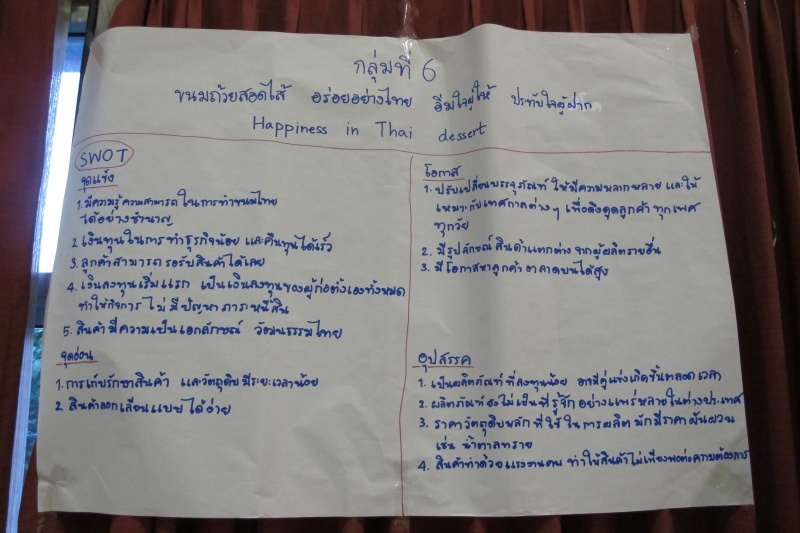 กลุ่มที่ 6
ขนมถ้วยสอดไส้ อร่อยอย่างไทย อิ่มใจผู้ให้ ประทับใจผู้ฝาก
Happiness in Thai dessert
SWOT
จุดแข็ง
1. มีความรู้ความสามารถในการทำขนมไทย
ได้อย่างชำนาญ
2. เงินทุนในการทำธุรกิจน้อย และคืนทุนได้เร็ว
3. ลูกค้าสามารถรอรับสินค้าได้เลย
4. เงินลงทุนเริ่มแรก เป็นเงินลงทุนของผู้ก่อตั้งเองทั้งหมด
ทำให้กิจการไม่มีปัญหาภาระหนี้สิน
5. สินค้ามีความเป็นเอกลักษณ์ วัฒนธรรมไทย
จุดอ่อน
1. การเก็บรักษาสินค้า และวัตถุดิบมีระยะเวลาน้อย
2. สินค้าลอกเลียนแบบได้ง่าย
โอกาส
1. ปรับเปลี่ยนบรรจุภัณฑ์ ให้มีความหลากหลาย และให้
เหมาะกับเทศกาลต่างๆ เพื่อดึงดูดลูกค้าทุกเพศ
ทุกวัย
2. มีรูปลักษณ์สินค้าแตกต่างจากผู้ผลิตรายอื่น
3. มีโอกาสหาลูกค้าตลาดบนได้สูง
อุปสรรค
1. เป็นผลิตภัณฑ์ที่ลงทุนน้อย อาจมีคู่แข่งเกิดขึ้นตลอดเวลา
2. ผลิตภัณฑ์ยังไม่เป็นที่รู้จักอย่างแพร่หลายในต่างประเทศ
3. ราคาวัตถุดิบหลักที่ใช้ในการผลิตมักมีราคาผันผวน
เช่น น้ำตาลทราย
4. สินค้าทำด้วยแรงงานคน ทำให้สินค้าไม่เพียงพอต่อความต้องการ